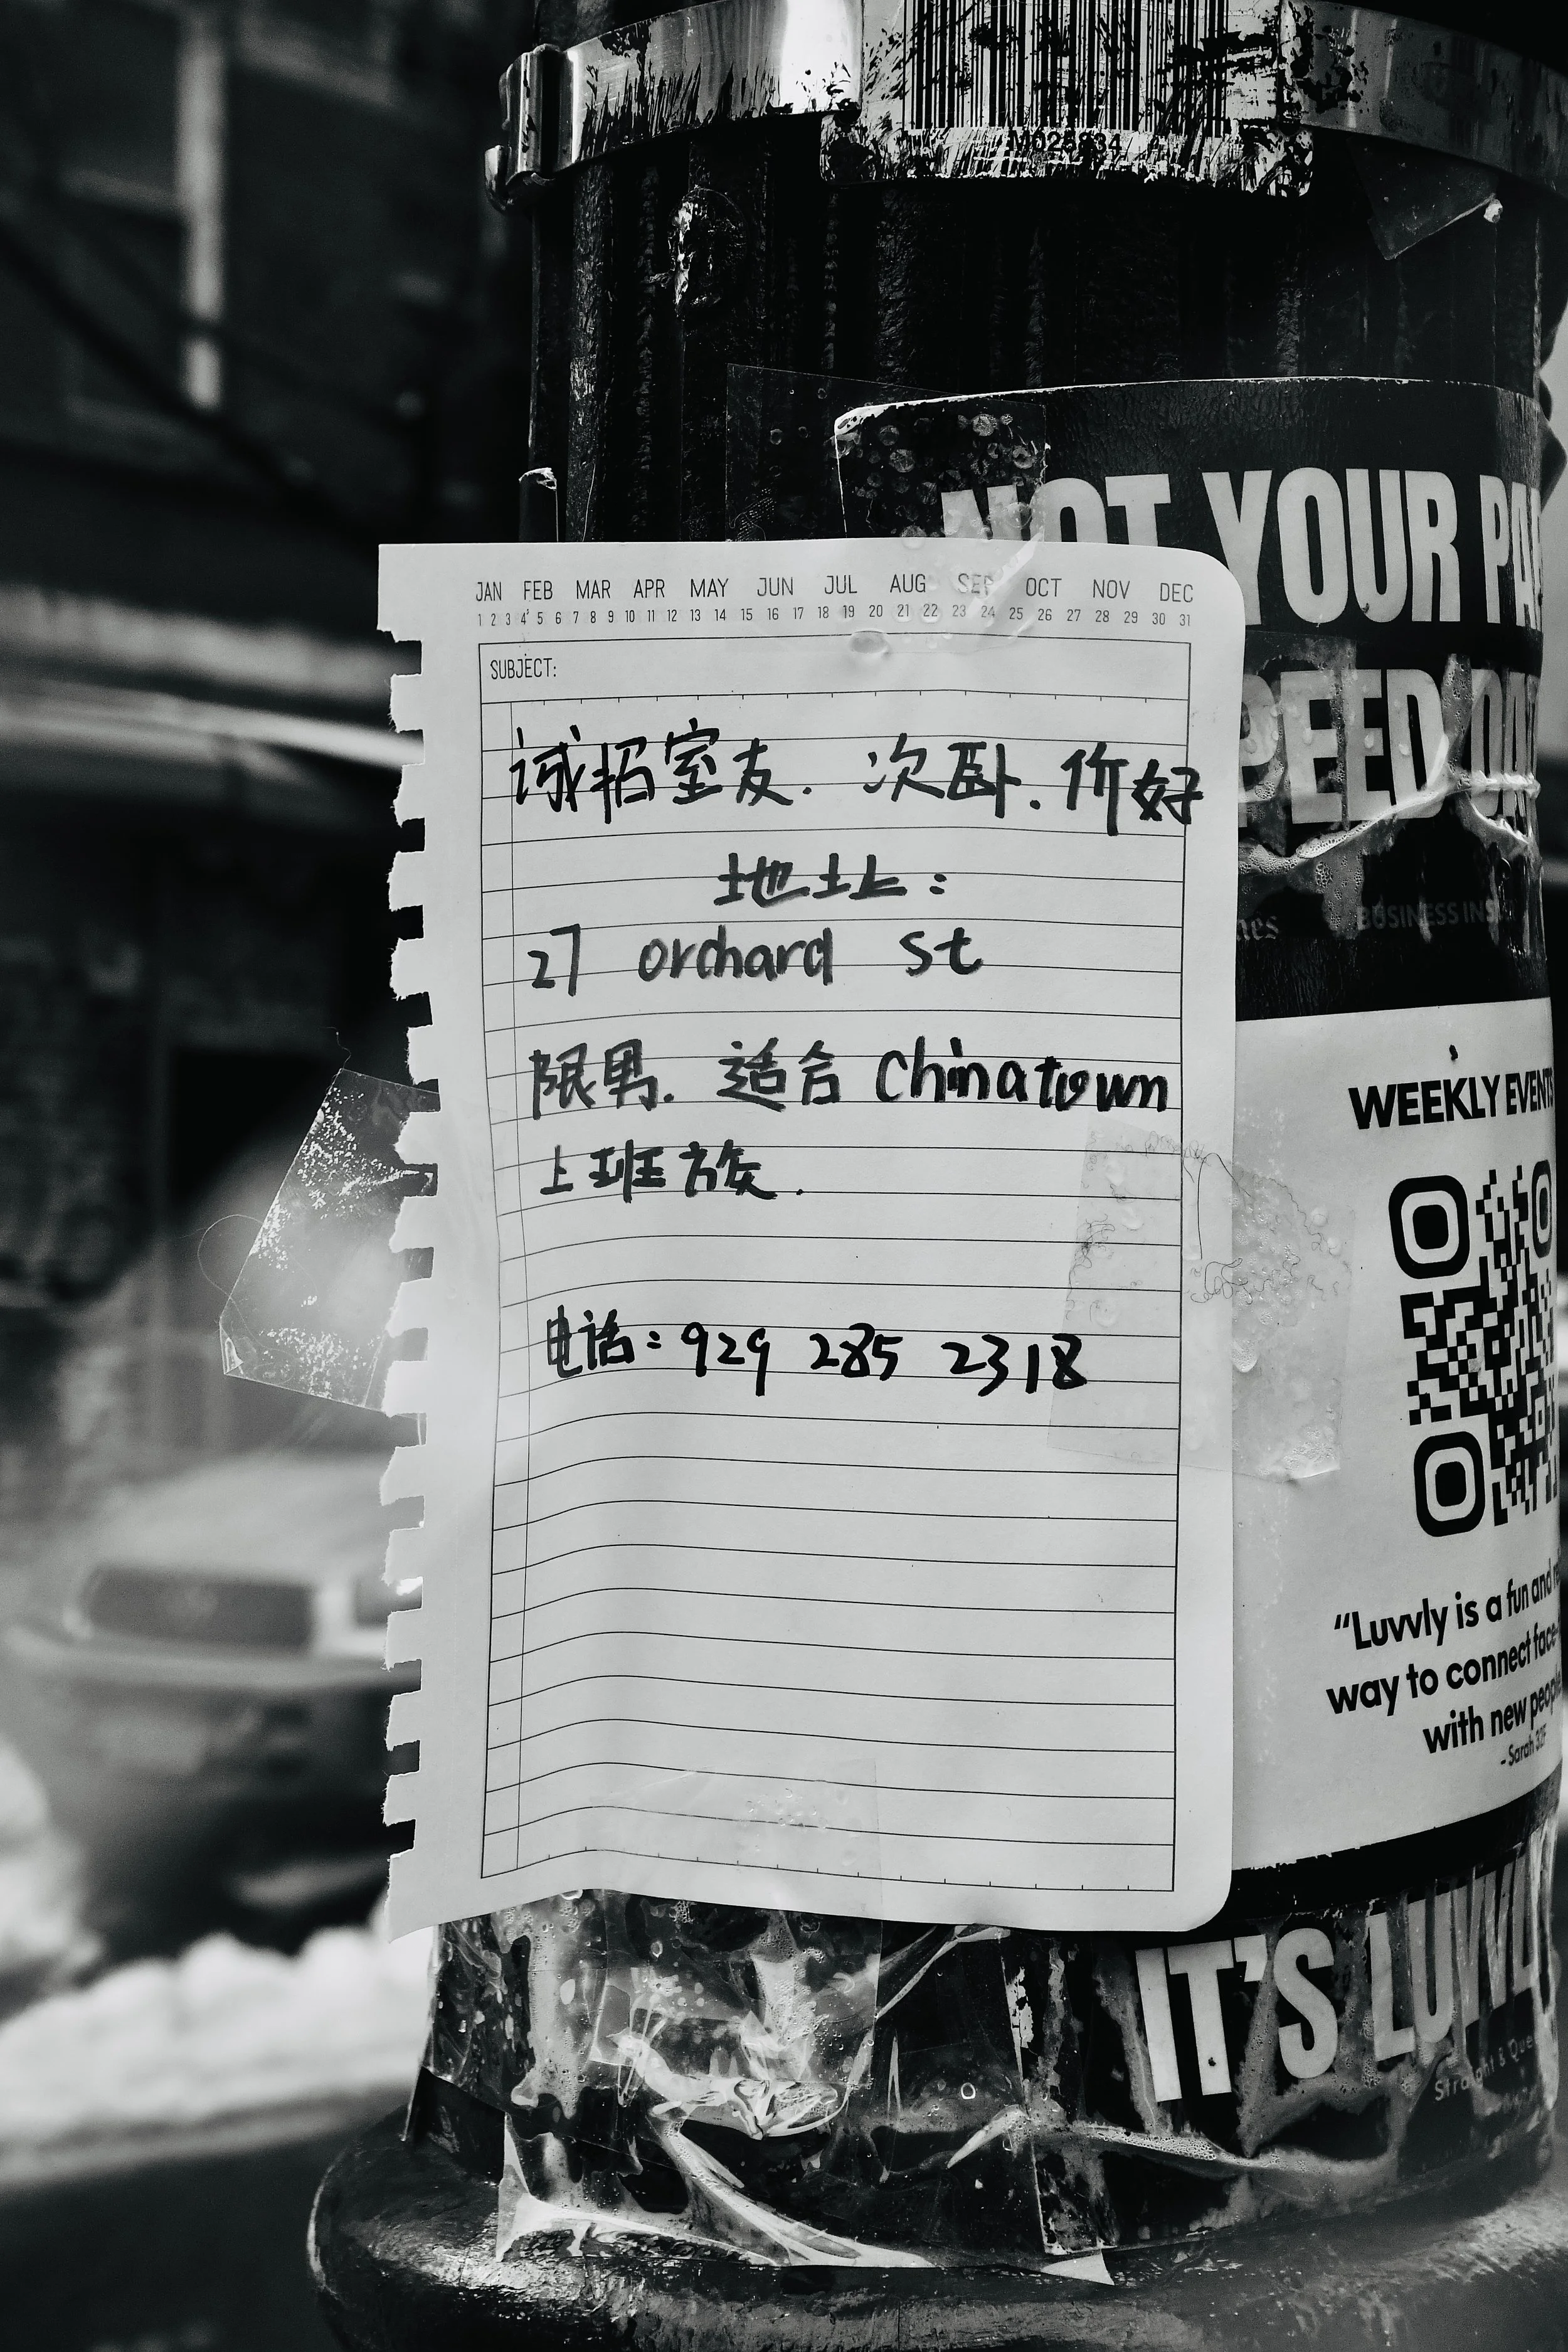 M025834
NOT YOUR
JAN FEB MAR APR MAY JUN JUL AUG SEP OCT NOV DEC
1 2 3 4 5 6 7 8 9 10 11 12 13 14 15 16 17 18 19 20 21 22 23 24 25 26 27 28 29 30 31
SUBJECT:
诚招室友. 次卧. 价好
地址:
27 orchard st
限男. 适合 Chinatown
上班族.
电话: 929 285 2318
PEED
BUSINESS
WEEKLY EVENTS
“Luvvly is a fun and
way to connect face
with new people
- Sarah
IT'S LUVVLY